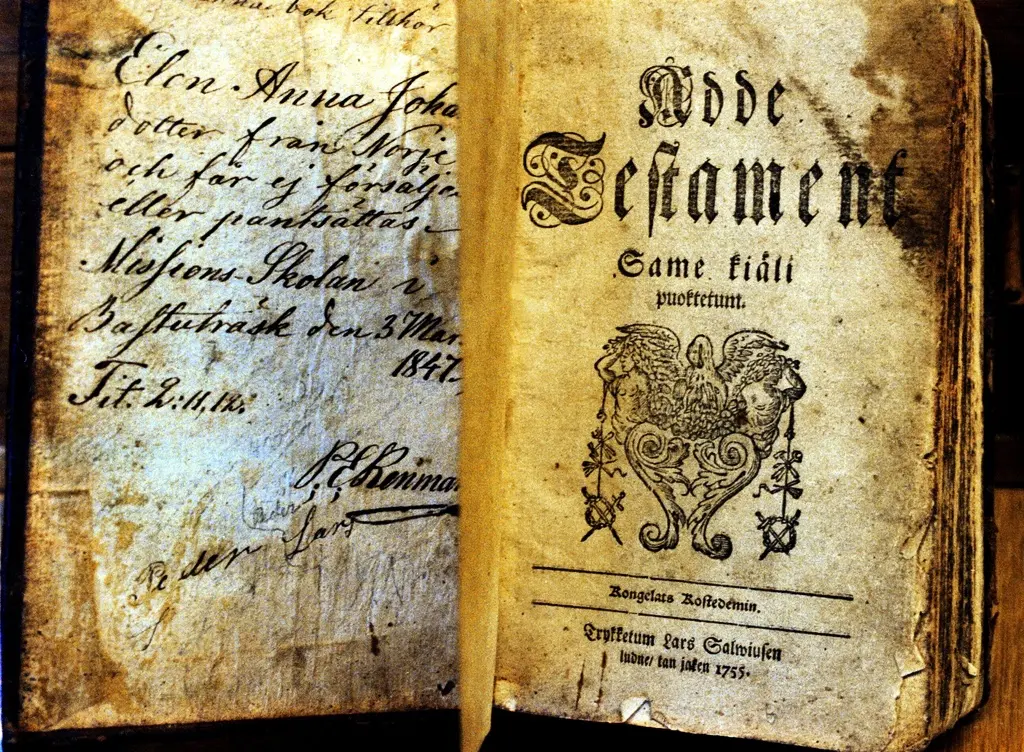 bok tillhör
Elen Anna Joha
dotter från Norje
och får ej försäljes
eller pantsättas.
Missions-Skolan i
Bastuträsk den 3 Mar.
1847.
Tit. 2:11,12.
Peder Lars
Ådde
Testament
Same kiäli
puoktetum.
Kongelats Kostedemin.
Trykketum Lars Salwiusen
ludne/ tan jaken 1755.